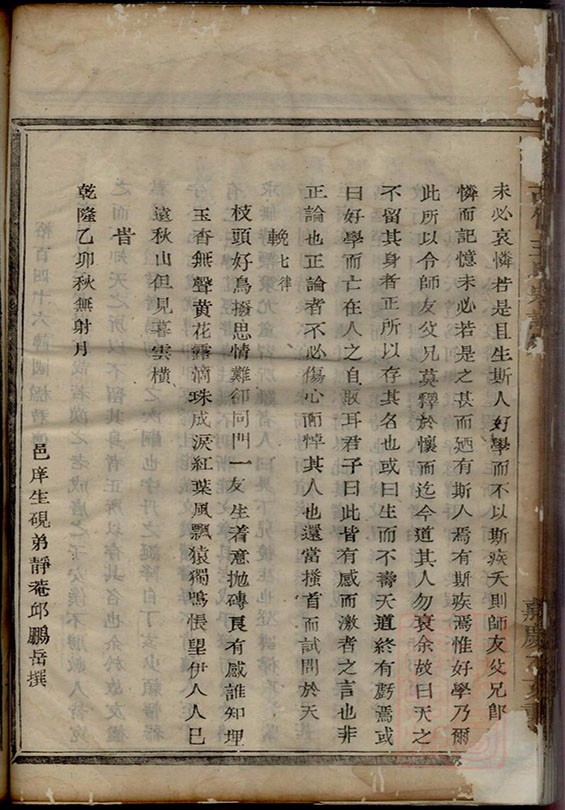 未必哀憐若是且生斯人好學而不以斯疾夭則師友父兄郎
憐而記憶未必若是之甚而廼有斯人焉有斯疾焉惟好學乃爾
此所以令師友父兄莫釋於懷而迄今道其人勿哀余故曰天之
不留其身者正所以存其名也或曰生而不壽天道終有虧焉或
曰好學而亡在人之自取耳君子曰此皆有感而激者之言也非
正論也正論者不必傷心而悼其人也還當搔首而試問於天
輓七律
枝頭好鳥撥思情難卻同門一友生着意拋磚良有感誰知埋
玉香無聲黃花露滴珠成淚紅葉風飄猿獨鳴悵望伊人人已
遠秋山但見暮雲橫
旹
乾隆乙卯秋無射月
邑庠生硯弟靜菴邱鵬岳撰